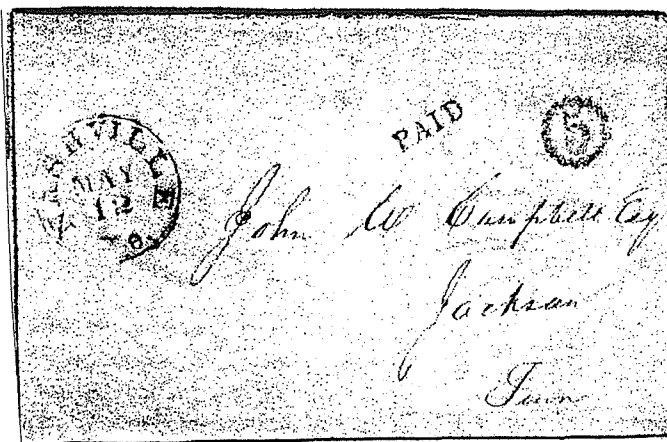 NASHVILLE
MAY
12
PAID
5
John W Campbell Esq
Jackson
Tenn